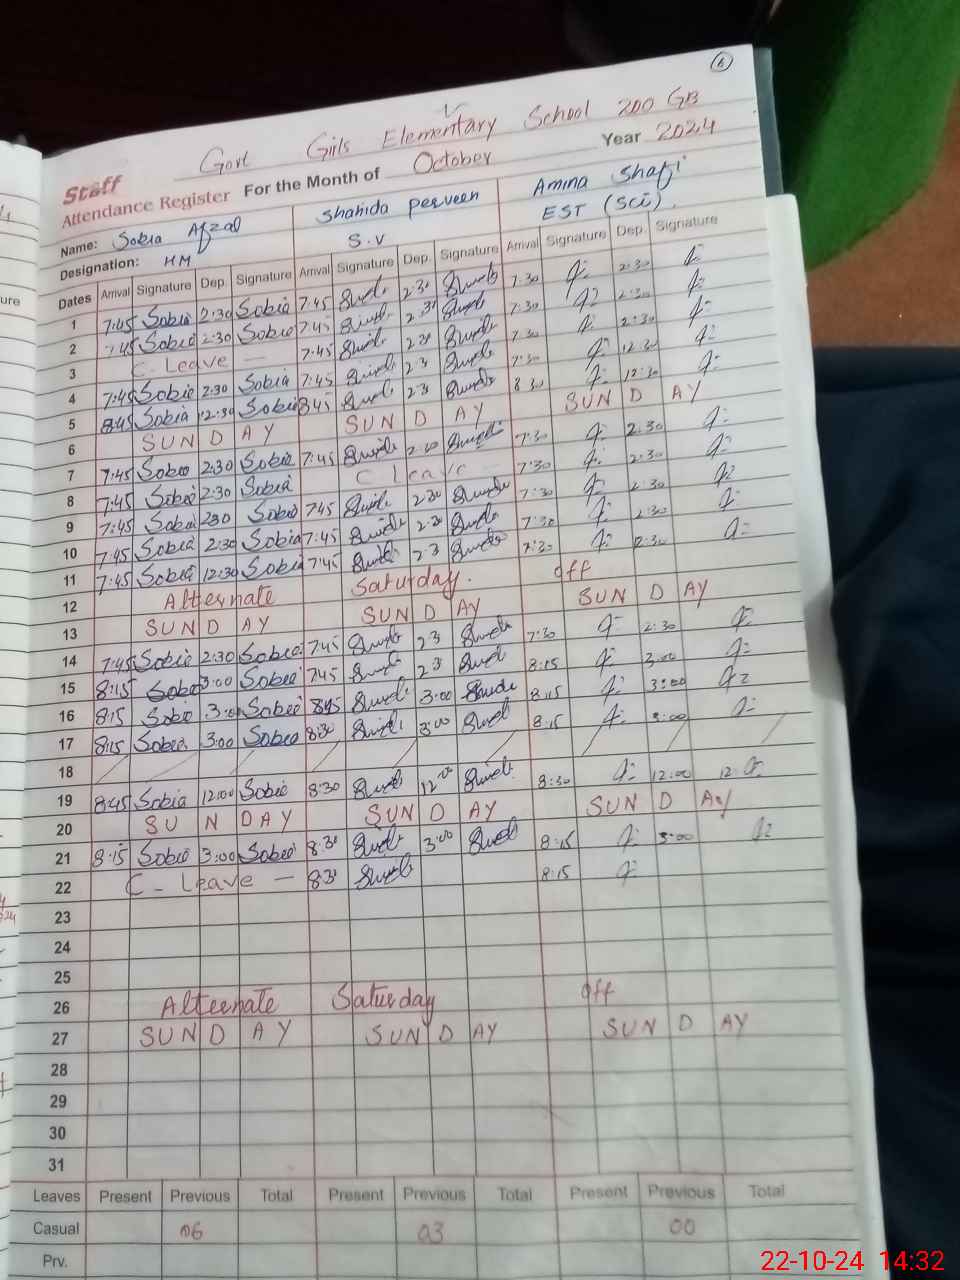 6
Govt Girls Elementary School 200 GB
Staff
Attendance Register For the Month of October Year 2024
Name: Sobia Afzal Shahida perveen Amina Shafi
Designation: HM S.V EST (Sci)
Dates Arrival Signature Dep. Signature Arrival Signature Dep. Signature Arrival Signature Dep. Signature
1 7:45 Sobia 2:30 Sobia 7:45 2:30 7:30 2:30
2 7:45 Sobia 2:30 Sobia 7:45 2:30 7:30 2:30
3 C. Leave — 7:45 7:30 2:30
4 7:45 Sobia 2:30 Sobia 7:45 7:30 12:30
5 8:45 Sobia 12:30 Sobia 8:45 8:30 12:30
6 SUN D AY SUN D AY SUN D AY
7 7:45 Sobia 2:30 Sobia 7:45 7:30 2:30
8 7:45 Sobia 2:30 Sobia C leave 7:30 2:30
9 7:45 Sobia 2:30 Sobia 7:45 2:30 7:30 2:30
10 7:45 Sobia 2:30 Sobia 7:45 7:30 2:30
11 7:45 Sobia 12:30 Sobia 7:45 7:30
12 Alternate Saturday. off
13 SUN D AY SUN D AY SUN D AY
14 7:45 Sobia 2:30 Sobia 7:45 7:30 2:30
15 8:15 Sobia 3:00 Sobia 7:45 8:15 3:00
16 8:15 Sobia 3:00 Sobia 8:45 3:00 8:15 3:00
17 8:15 Sobia 3:00 Sobia 8:30 3:00 8:15 3:00
18
19 8:45 Sobia 12:00 Sobia 8:30 12:00 8:30 12:00
20 SU N DAY SUN D AY SUN D AY
21 8:15 Sobia 3:00 Sobia 8:30 3:00 8:15 3:00
22 C - Leave — 8:30 8:15
23
24
25
26 Alternate Saturday off
27 SUN D AY SUN D AY SUN D AY
28
29
30
31
Leaves Present Previous Total Present Previous Total Present Previous Total
Casual 06 03 00
Prv.
22-10-24 14:32